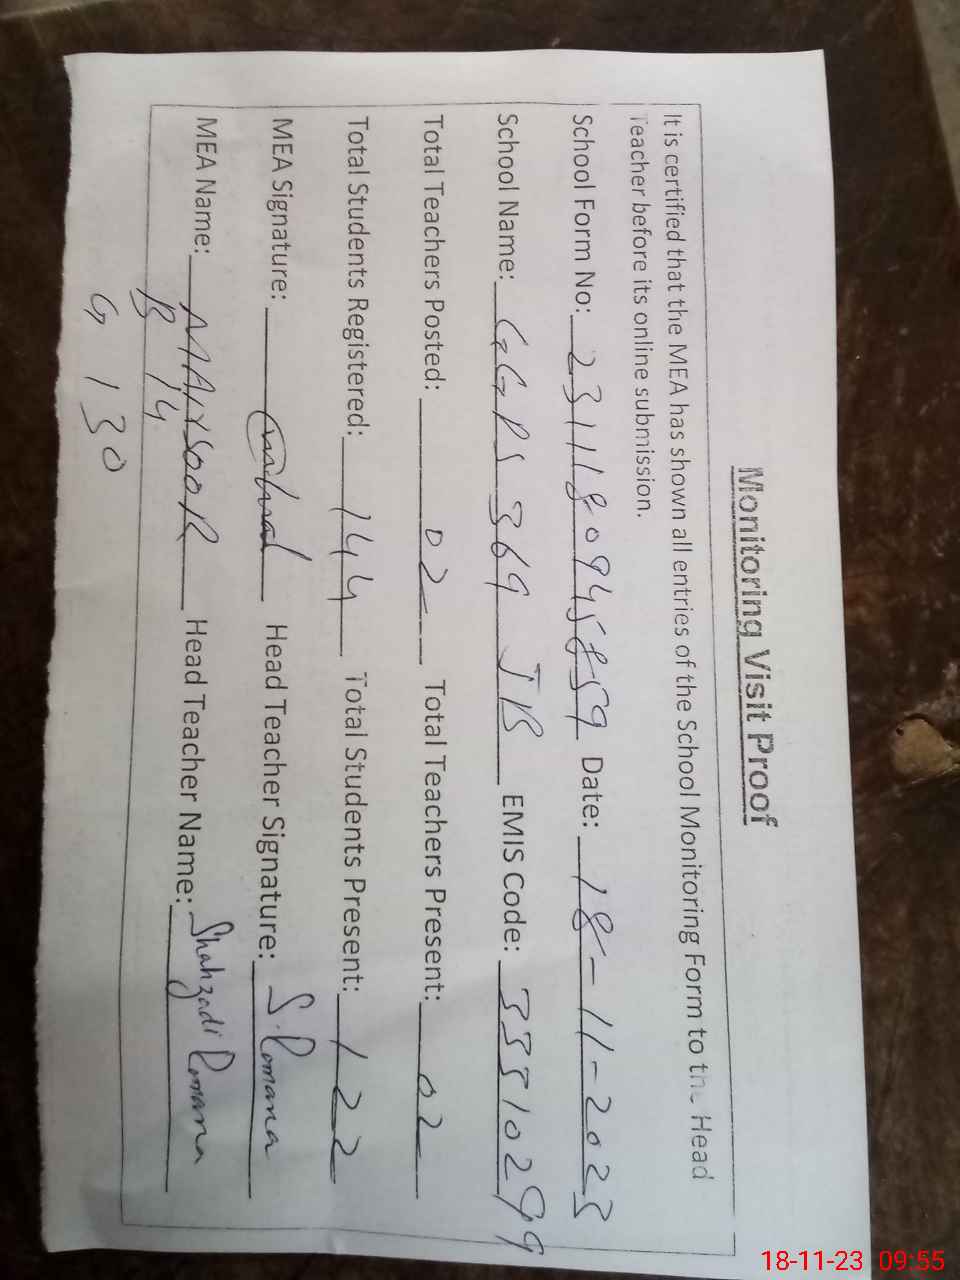 Monitoring Visit Proof
It is certified that the MEA has shown all entries of the School Monitoring Form to the Head
Teacher before its online submission.
School Form No: 23111809458859 Date: 18-11-2023
School Name: GGPS 369 JB EMIS Code: 33510299
Total Teachers Posted: 02 Total Teachers Present: 02
Total Students Registered: 144 Total Students Present: 122
MEA Signature: Head Teacher Signature: S. Romana
MEA Name: MANSOOR Head Teacher Name: Shahzadi Romana
B 14
G 130
18-11-23 09:55